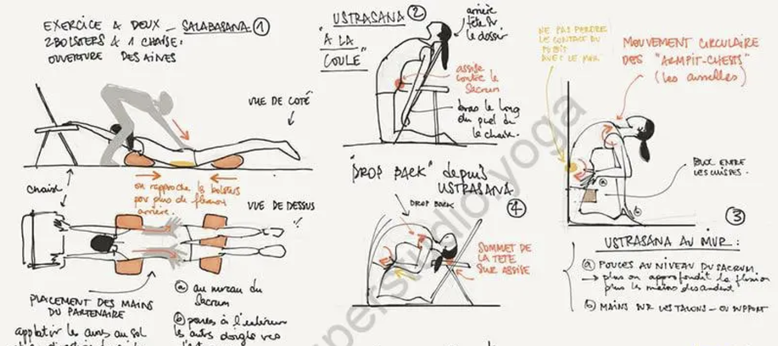 EXERCICE A DEUX - SALABASANA ①
2 BOLSTERS & 1 CHAISE.
OUVERTURE DES AINES
VUE DE COTÉ
chaise
on rapproche les bolsters
pour plus de flexion
arrière.
VUE DE DESSUS
PLACEMENT DES MAINS
DU PARTENAIRE
ⓐ au niveau du
Sacrum
ⓑ
applatir les aines au sol
USTRASANA ②
"A LA
COULE"
arrière
tête sur
le dossier
assise
contre le
Sacrum
bras le long
du pied de
la chaise.
"DROP BACK" depuis
USTRASANA
④
DROP BACK
SOMMET DE
LA TETE
SUR ASSISE
NE PAS PERDRE
LE CONTACT DU
PUBIS
AVEC LE MUR
MOUVEMENT CIRCULAIRE
DES "ARMPIT-CHESTS"
(les aisselles)
BLOC ENTRE
LES CUISSES.
a
b
③
USTRASANA AU MUR :
ⓐ POUCES AU NIVEAU DU SACRUM
→ plus on approfondit la flexion
plus les mains descendent
ⓑ MAINS SUR LES TALONS - OU SUPPORT
perstudio yoga